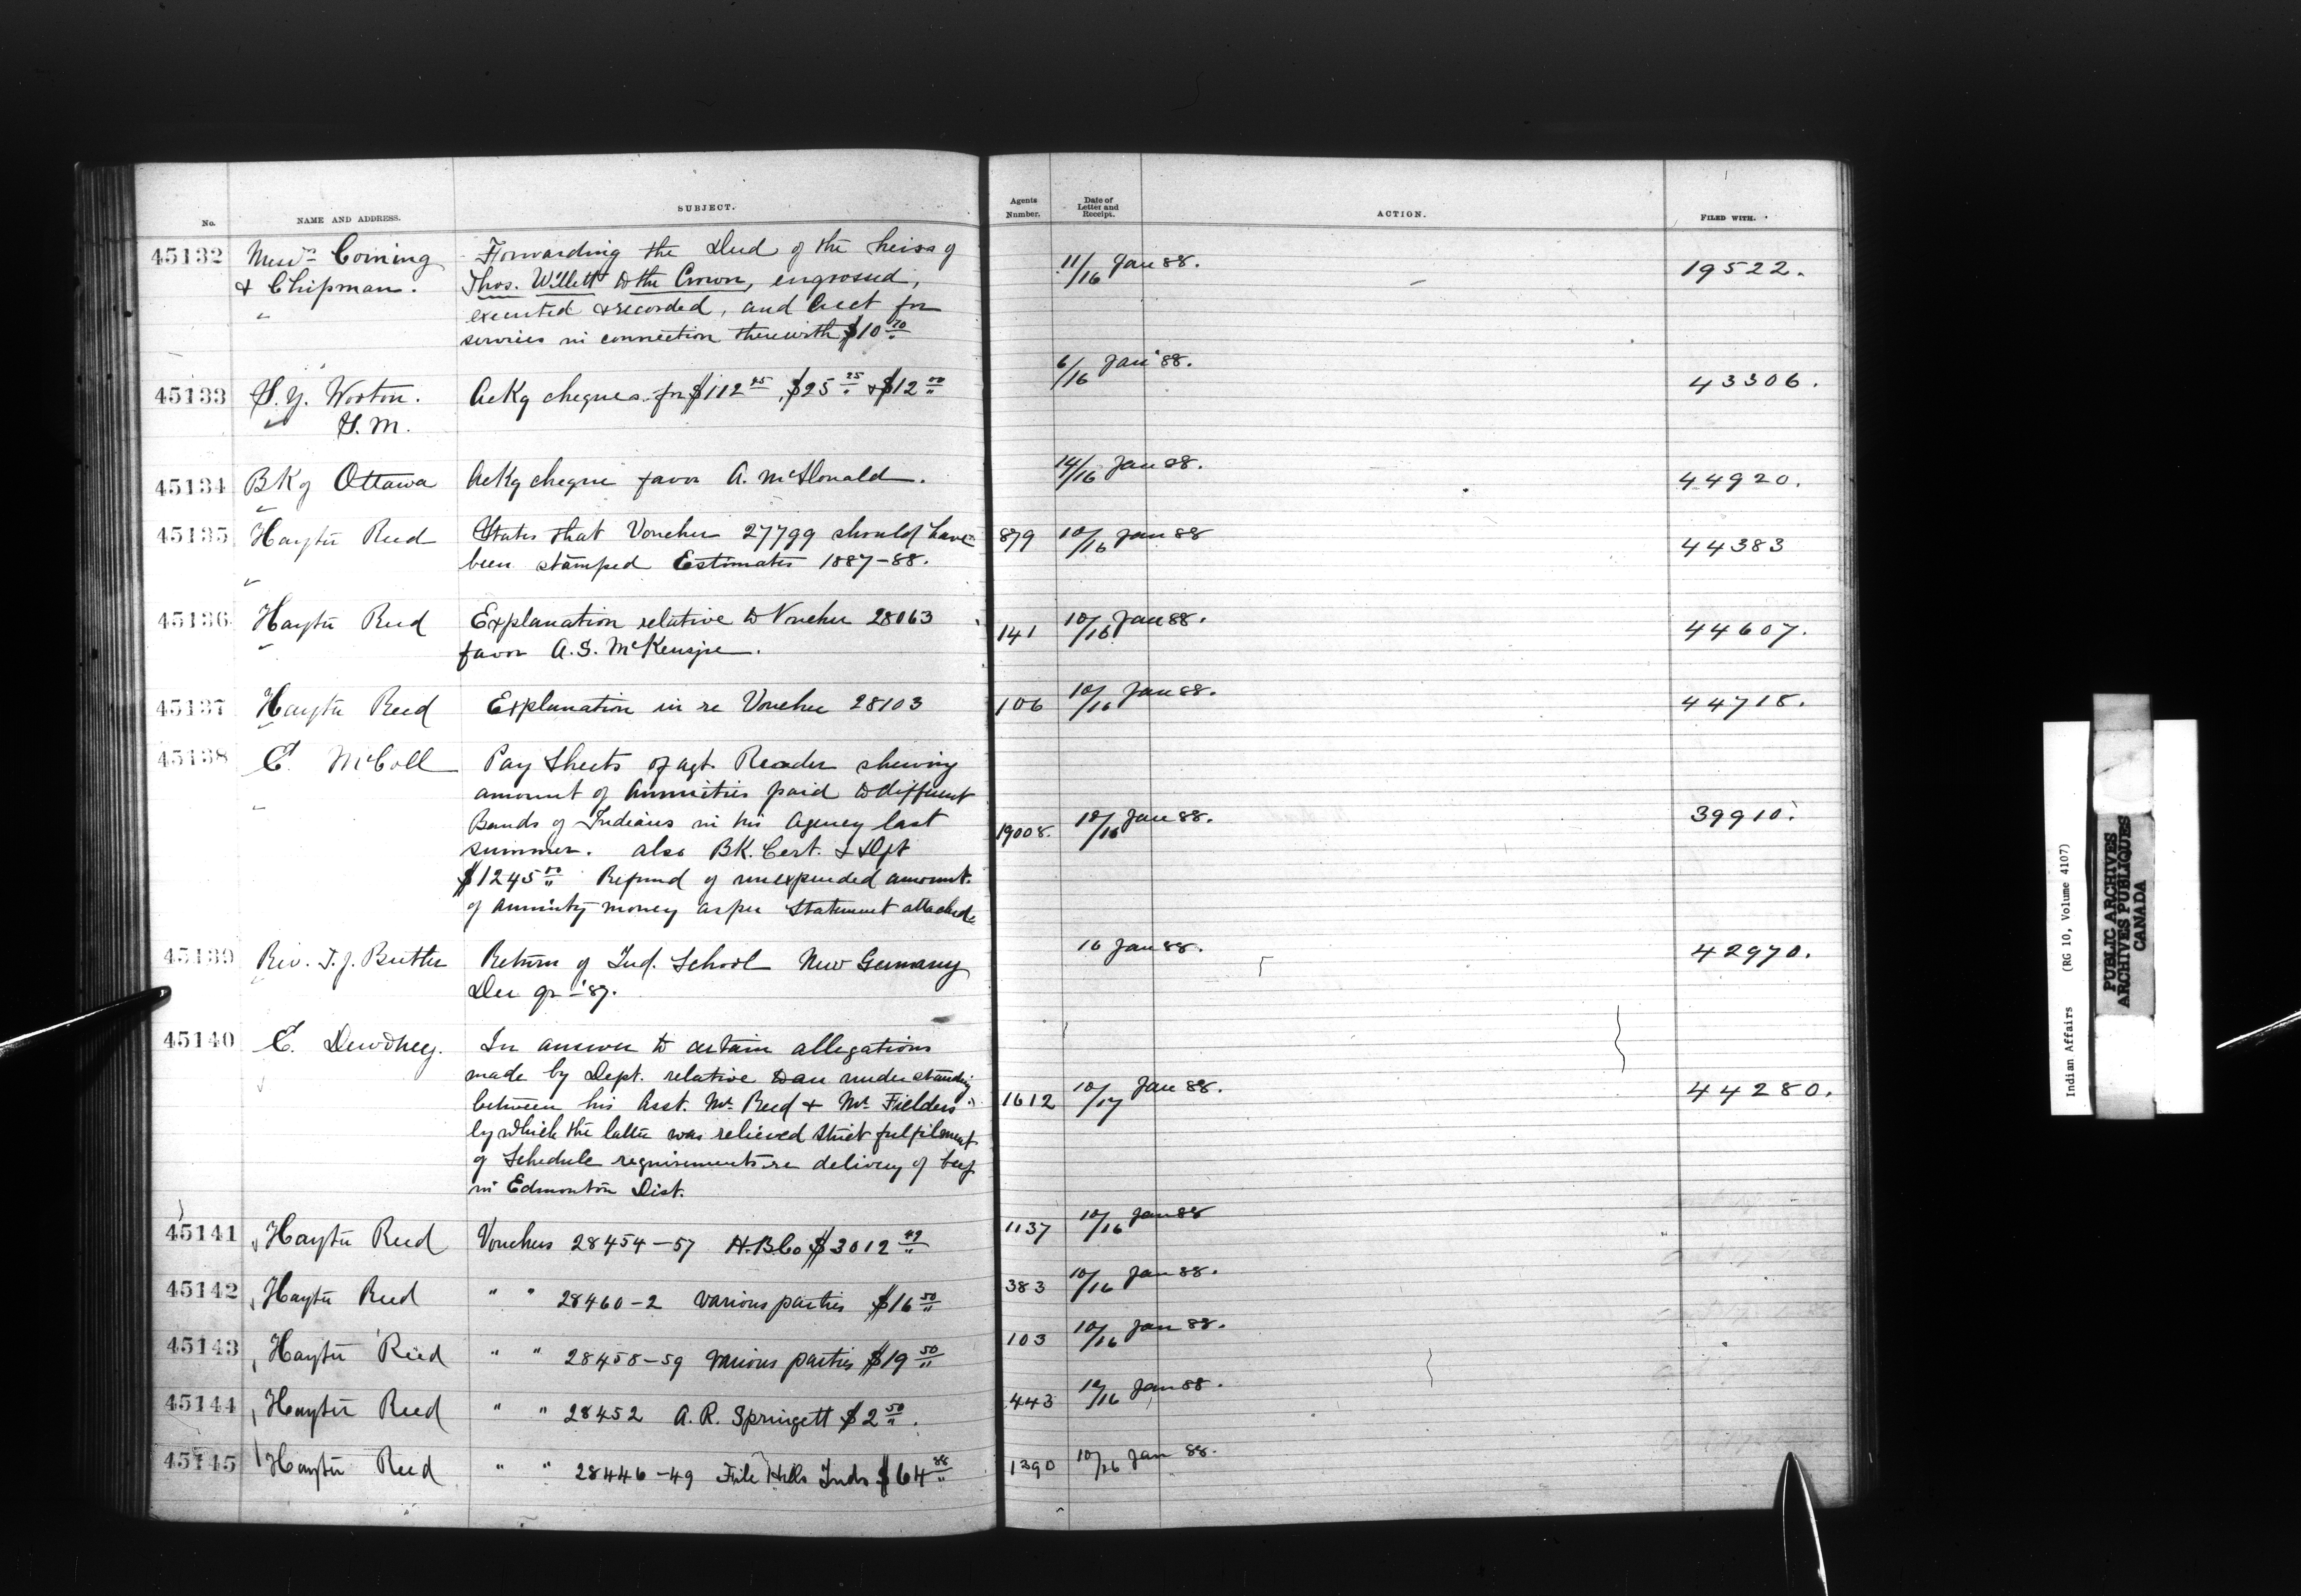 No.
NAME AND ADDRESS.
SUBJECT.
Agents Number.
Date of Letter and Receipt.
ACTION.
FILED WITH.
45132 Messrs Corning Forwarding the Deed of the heirs of 11/16 Jan 88. 19522.
& Chipman. Thos. Willett to the Crown, engrossed,
executed & recorded, and acct for
services in connection therewith $10 70
45133 Worton. AcKg cheques for $112 25, $25 25 & $12 00 6/16 Jan '88. 43306.
S. M.
45134 BK of Ottawa AcKg cheque favor A. McDonald. 14/16 Jan 88. 44920.
45135 Hayter Reed States that Voucher 27799 should have 879 10/16 Jan 88 44383
been stamped Estimates 1887-88.
45136 Hayter Reed Explanation relative to Voucher 28063 141 10/16 Jan 88. 44607.
favor A. S. McKenzie.
45137 Hayter Reed Explanation in re Voucher 28103 106 10/16 Jan 88. 44718.
45138 E. McColl Pay Sheets of agt. Reader shewing
amount of Annuities paid to different
Bands of Indians in his Agency last 19008. 10/16 Jan 88. 39910.
summer. also BK. Cert. & Dft
$1245 00 Refund of unexpended amount
of annuity money as per Statement attached
45139 Rev. T. J. Butler Return of Ind. School New Germany 16 Jan 88. 42970.
Dec qr - '87.
45140 E. Dewdney. In answer to certain allegations
made by Dept. relative to an understanding
between his Asst. Mr Reed & Mr Fielders 1612 10/17 Jan 88. 44280.
by which the latter was relieved strict fulfilment
of Schedule requirements re delivery of beef
in Edmonton Dist.
45141 Hayter Reed Vouchers 28454-57 H.B.Co $3012 49 1137 10/16 Jan 88
45142 Hayter Reed " " 28460-2 various parties $16 50 383 10/16 Jan 88.
45143 Hayter Reed " " 28458-59 various parties $19 50 103 10/16 Jan 88.
45144 Hayter Reed " " 28452 A. R. Springett $2 50. 443 10/16 Jan 88.
45145 Hayter Reed " " 28446-49 File Hills Inds $64 88 1390 10/16 Jan 88.
Indian Affairs (RG 10, Volume 4107)
PUBLIC ARCHIVES
ARCHIVES PUBLIQUES
CANADA